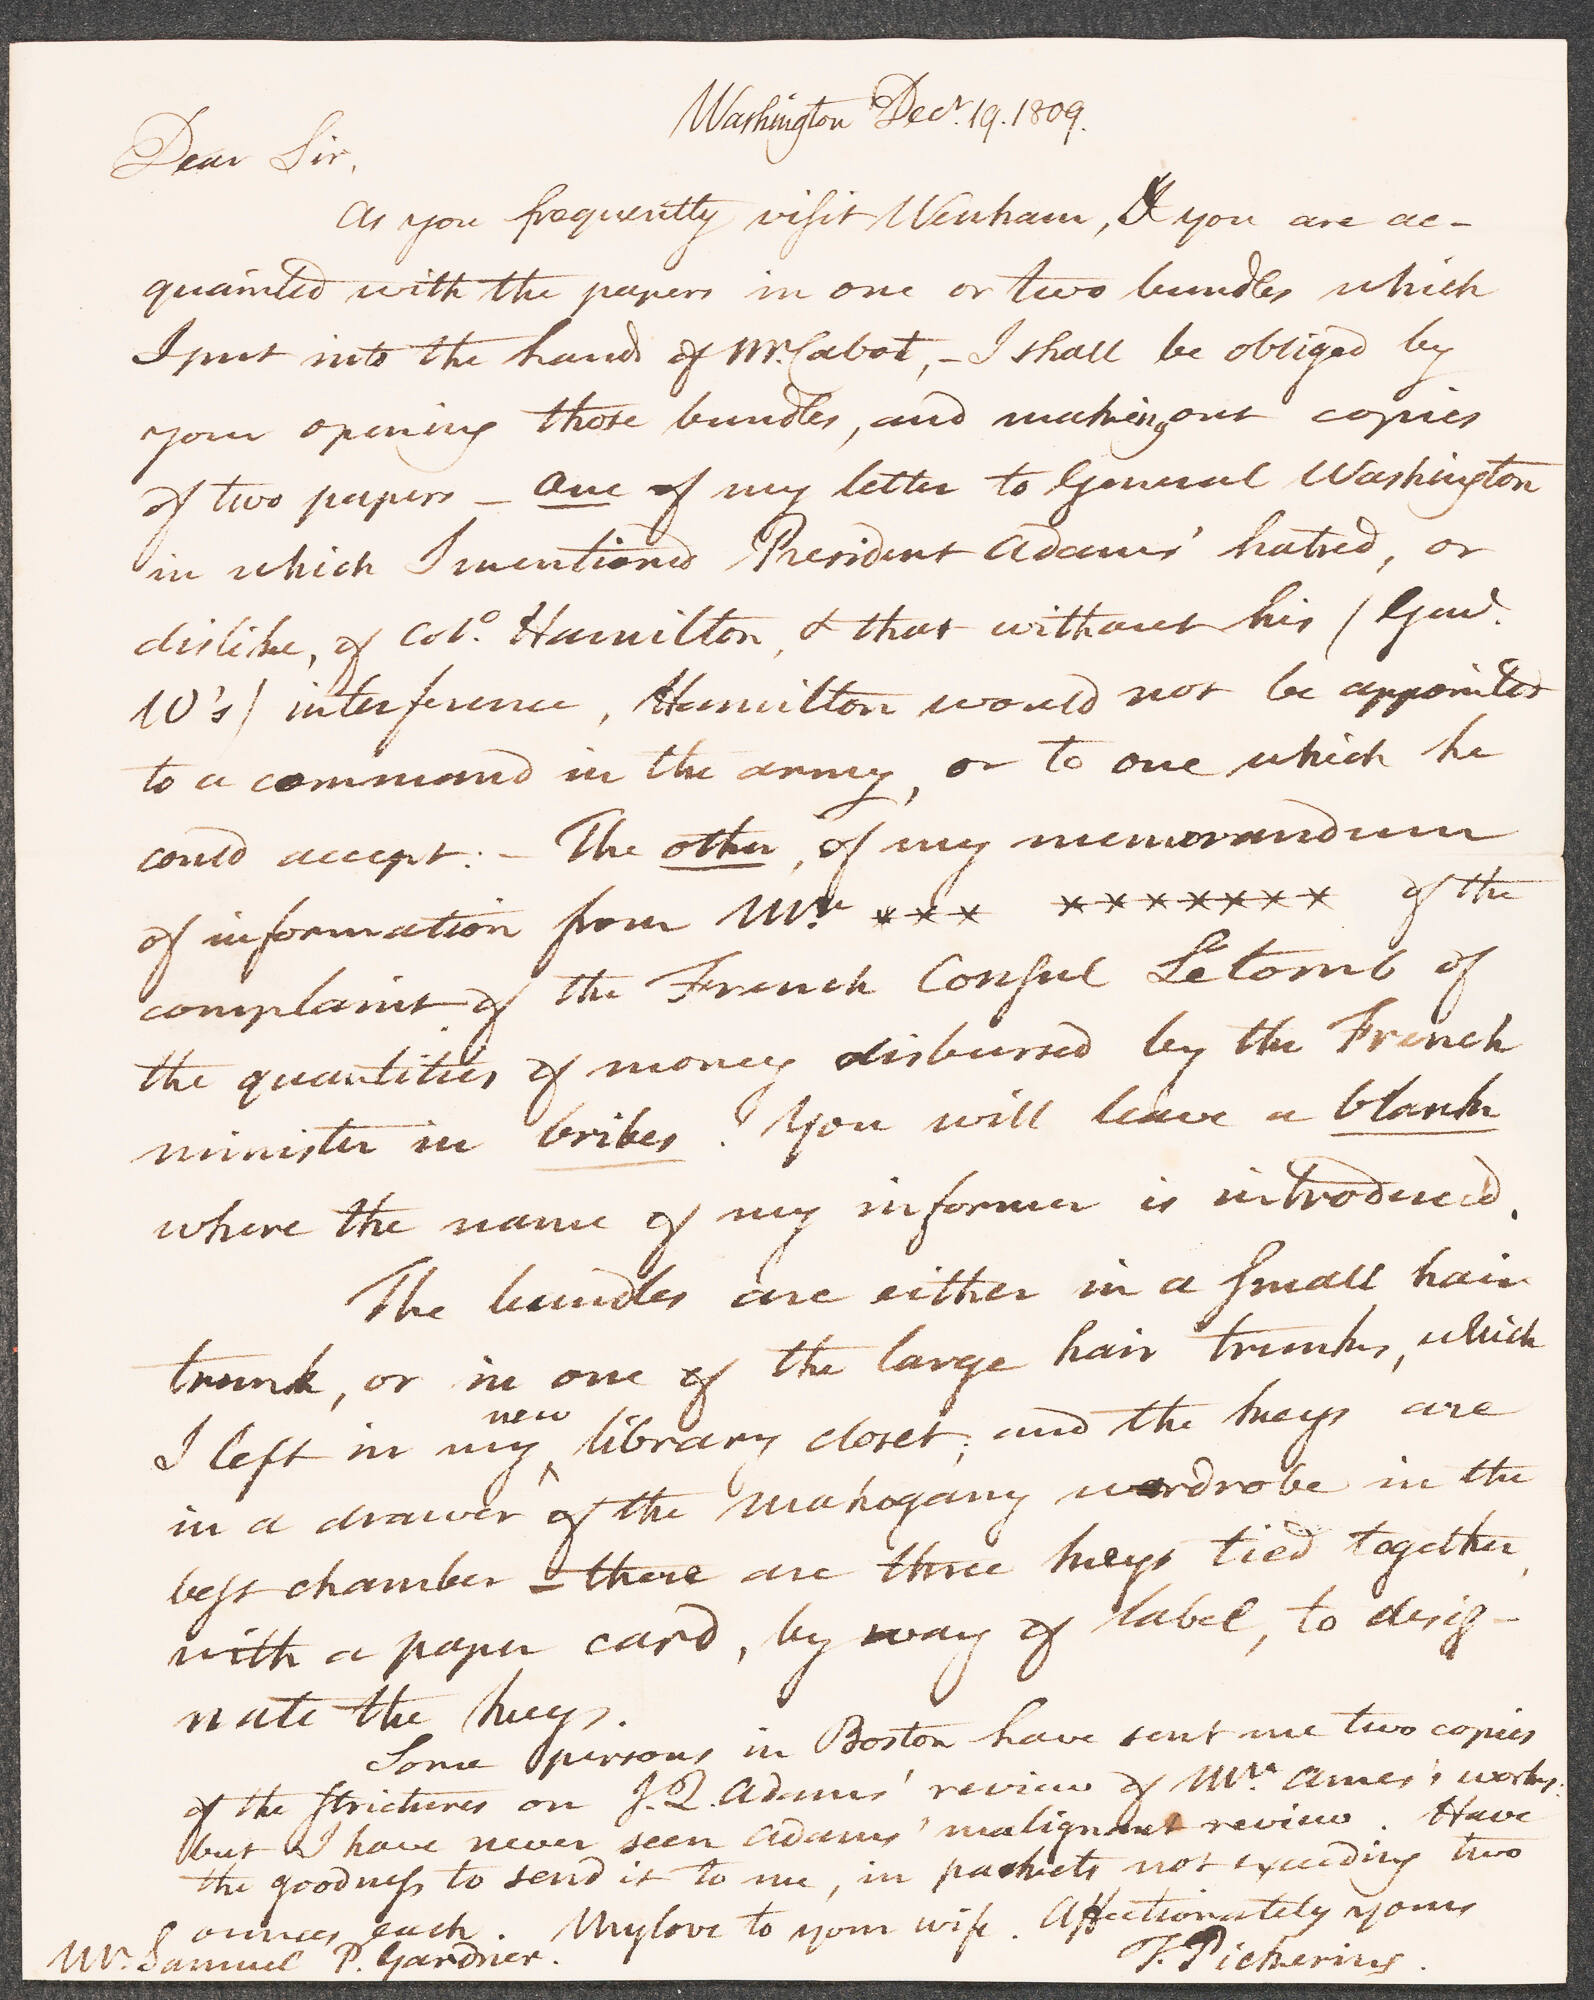 Washington Decr. 19. 1809.
Dear Sir,
As you frequently visit Wenham, & you are ac-
quainted with the papers in one or two bundles which
I put into the hands of Mr. Cabot, - I shall be obliged by
your opening those bundles, and making out copies
of two papers - one of my letter to General Washington
in which I mentioned President Adams' hatred, or
dislike, of Colo. Hamilton, & that without his (Genl.
W's) interference, Hamilton would not be appointed
to a command in the army, or to one which he
could accept: - The other, of my memorandum
of information from Mr. xxx xxxxxxx of the
complaint of the French Consul Letomb of
the quantities of money disbursed by the French
minister in bribes. You will leave a blank
where the name of my informer is introduced.
The bundles are either in a small hair
trunk, or in one of the large hair trunks, which
I left in my new library closet; and the keys are
in a drawer of the mahogany wardrobe in the
best chamber - there are three keys tied together,
with a paper card, by way of label, to desig-
nate the keys.
Some persons in Boston have sent me two copies
of the strictures on J. Q. Adams' review of Mr. Ames's works:
but I have never seen Adams' malignant review. Have
the goodness to send it to me, in packets not exceeding two
ounces each. My love to your wife. Affectionately yours
T. Pickering.
Mr. Samuel P. Gardner.